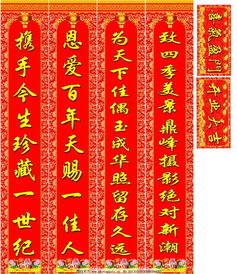 致四季美景鼎峰摄影绝对新潮
为天下佳偶玉成华照留存久远
恩爱百年天赐一佳人
携手今生珍藏一世纪
喜氣盈門
开业大吉